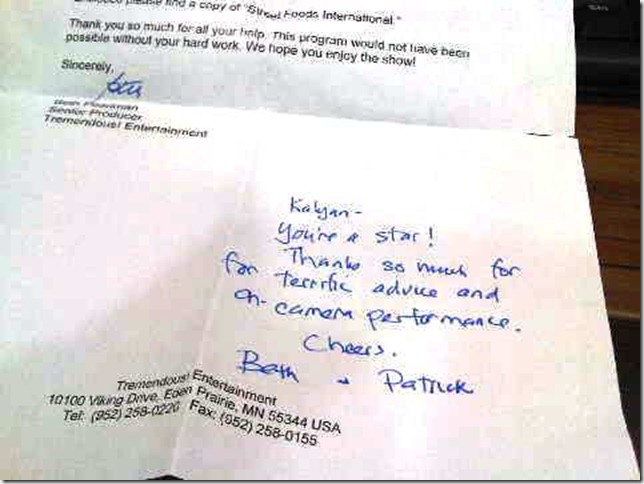 please find a copy of "Street Foods International."
Thank you so much for all your help. This program would not have been
possible without your hard work. We hope you enjoy the show!
Sincerely,
Beth
Senior Producer
Tremendous! Entertainment
Kalyan-
You're a star!
Thanks so much for
for terrific advice and
on-camera performance.
Cheers.
Beth + Patrick
Tremendous! Entertainment
10100 Viking Drive, Eden Prairie, MN 55344 USA
Tel: (952) 258-0220 Fax: (952) 258-0155